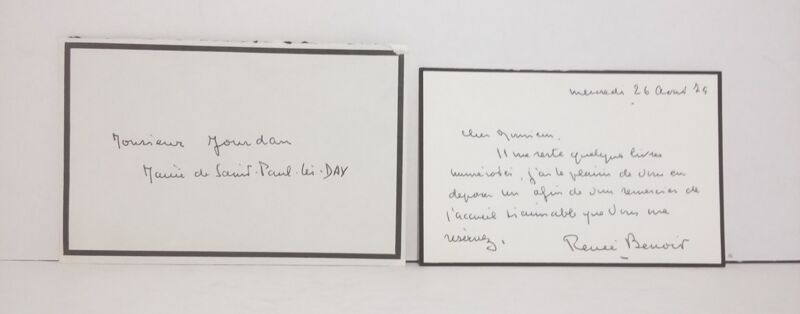 Monsieur Jourdan
Mairie de Saint-Paul-lès-DAX
mercredi 26 Août
Cher Monsieur,
Il me reste quelques livres
numérotés, j'ai le plaisir de vous en
déposer un afin de vous remercier de
l'accueil si aimable que vous me
réservez.
Renée Benoit